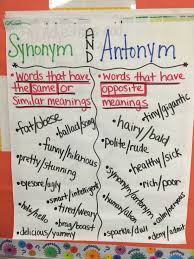 Synonym AND Antonym
• Words that have the same or similar meanings
• fat/obese
• ballad/song
• funny/hilarious
• pretty/stunning
• eyesore/ugly
• smart/intelligent
• tired/weary
• holy/hello
• brag/boast
• delicious/yummy
• Words that have opposite meanings
• hairy/bald
• polite/rude
• healthy/sick
• rich/poor
• synonym/antonym
• human/alien
• sparkle/dull
• deny/admit